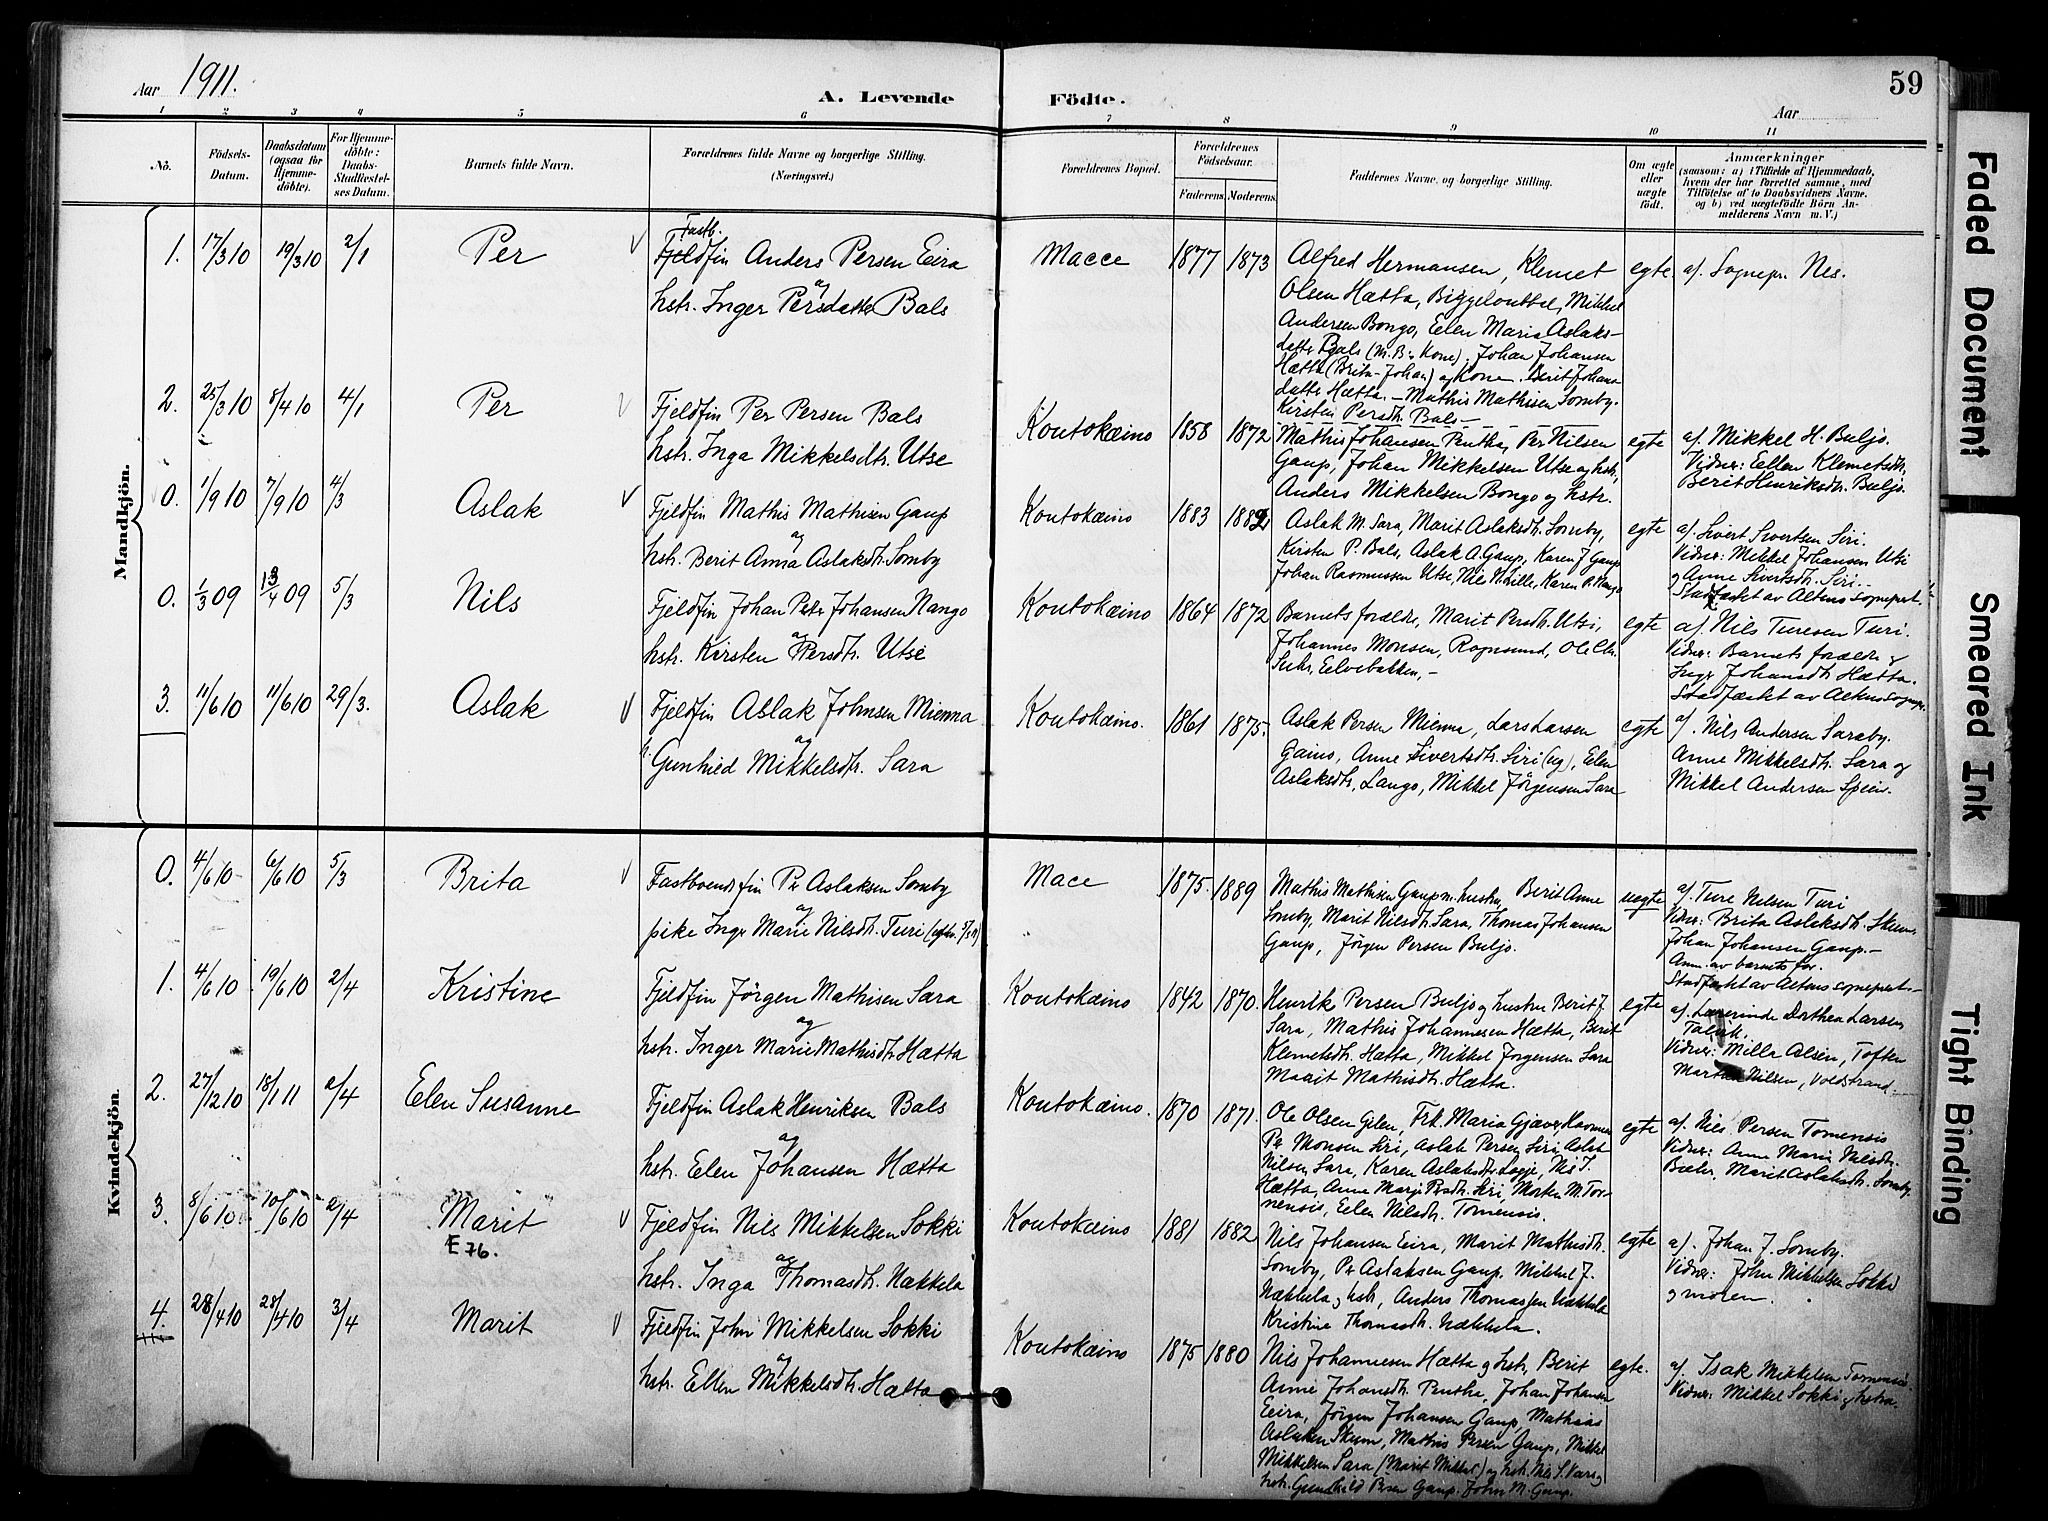 Aar 1911.
A. Levende Födte.
Aar
59
1 2 3 4 5 6 7 8 9 10 11
Nò.
Födsels-Datum.
Daabsdatum (ogsaa for Hjemme-döbte).
For Hjemme-döbte: Daabs-Stadfæstel-ses Datum.
Barnets fulde Navn.
Forældrenes fulde Navne og borgerlige Stilling. (Næringsvei.)
Forældrenes Bopæl.
Forældrenes Födselsaar.
Faderens. Moderens.
Faddernes Navne og borgerlige Stilling.
Om ægte eller uægte födt.
Anmærkninger
(saasom: a) i Tilfælde af Hjemmedaab,
hvem der har forrettet samme, med
Tilföielse af to Daabsvidners Navne.
og b) ved uægtefödte Börn An-
melderens Navn m. V.)
Mandkjön.
1. 17/3 10 19/3 10 2/1 Per
Fastb.
Fjeldfin Anders Persen Eira
og
hstr. Inger Persdatter Bals
Macce 1877 1873
Alfred Hermansen, Klemet
Olsen Hætta, Mikkel
Andersen Bongo, Eelen Maria Aslaks-
datter Bals (M. B.s Kone). Johan Johansen
Hætta (Brita-Johan) og Kone. Berit Johans
datter Hætta. – Mathis Mathisen Somby.
Kirsten Persdtr. Bals –
egte af. Sognepr. Nes.
2. 25/3 10 8/4 10 4/1 Per
Fjeldfin Per Persen Bals
hstr. Inga Mikkelsdtr. Utse
Koutokæino 1858 1872
Mathis Johansen Pentha, Per Nilsen
Gaup, Johan Mikkelsen Utse og hstr,
Anders Mikkelsen Bongo og hstr.
egte af. Mikkel H. Buljo.
Vidner: Eellen Klemetsdtr,
Berit Henriksdtr. Buljo.
0. 1/9 10 7/9 10 4/3 Aslak
Fjeldfin Mathis Mathisen Gaup
og
hstr. Berit Anna Aslaksdtr. Somby
Koutokæino 1883 1889
Aslak M. Sara, Marit Aslaksdtr. Somby,
Kirsten P. Bals, Aslak A. Gaup, Karen J Gaup
Johan Rasmussen Utse, Nils N. Lille, Karen P. Nango
egte af. Sivert Sivertsen Siri.
Vidner: Mikkel Johansen Utsi
og Anne Sivertsdtr. Siri. –
Stadfæstet av Altens sogneprest.
0. 1/3 09 13/4 09 5/3 Nils
Fjeldfin Johan Peter Johansen Nango
og
hstr. Kirsten Persdtr. Utse
Koutokæino 1864 1872
Barnets forældre, Marit Persdtr. Utsi,
Johannes Monsen, Rognsund, Ole Chr.
Suhr, Eelvebakken, –
egte af. Nils Turesen Turi.
Vidner: Barnets forældre og
Inger Johansdtr. Hætta.
Stadfæstet av Altens sognepr.
3. 11/6 10 11/6 10 29/3. Aslak
Fjeldfin Aslak Johnsen Mienna
og
h. Gunhild Mikkelsdtr. Sara
Koutokæino. 1861 1875.
Aslak Persen Mienna, Lars Larsen
Gaino, Anne Sivertsdtr. Siri (ug), Elen
Aslaksdtr, Lango, Mikkel Jörgensen Sara
egte af. Nils Andersen Saraby.
Anne Mikkelsdtr. Sara og
Mikkel Andersen Spein.
Kvindekjön.
0. 4/6 10 6/6 10 5/3 Brita
Fastboende fin Per Aslaksen Somby
og
pike Inger Marie Nilsdtr. Turi
Mace 1875. 1889
Mathis Mathisen Gaup m. hustru, Berit Anne
Somby, Marit Nilsdtr. Sara, Thomas Johansen
Gaup, Jörgen Persen Buljo.
uegte af. Ture Nilsen Turi
Vidner: Brita Aslaksdtr. Skum,
Johan Johansen Gaup. –
Anm. av barnets far.
Stadfæstet av Altens sogneprest. –
1. 4/6 10 19/6 10 2/4 Kristine
Fjeldfin Jörgen Mathisen Sara
og
hstr. Inger Marie Mathisdtr. Hætta
Koutokæino 1842 1870.
Henrik Persen Buljo og hustru Berit J.
Sara, Mathis Johannesen Hætta, Berit
Klemetsdtr. Hætta, Mikkel Jörgensen Sara
Marit Mathisdtr. Hætta.
egte af. Lærerinde Dorthea Larsen,
Talvik.
Vidner: Milla Olsen, Toften
Nilsen, Voldstrand.
2. 27/12 10 18/1 11 2/4 Elen Susanne
Fjeldfin Aslak Henriksen Bals
og
hstr. Elen Johansen Hætta
Koutokæino. 1870 1871.
Ole Olsen Gilen, Frk. Maria Gjæver,
Per Monsen Siri, Aslak Persen Siri, Aslak
Nilsen Sara, Karen Aslaksdtr. Logje, Nils J.
Hætta, Anne Marje Persdtr. Siri, Morten M. Tor-
nensis, Eelen Nilsdtr. Tornensis.
egte af. Nils Persen Tornensis
Vidner: Anne Marie Nilsdtr.
Bæhr, Marit Aslaksdtr. Somby.
3. 8/6 10 10/6 10 2/4 Marit
E 76.
Fjeldfin Nils Mikkelsen Sokki
og
hstr. Inga Thomasdtr. Nækkela
Koutokæino 1881 1882
Nils Johansen Eira, Marit Mathisdtr.
Somby, Per Aslaksen Gaup, Mikkel J.
Nækkela og hstr, Anders Thomassen Nækkela
Kristine Thomasdtr. Nækkela.
egte af. Johan J. Somby.
Vidner: John Mikkelsen Sokki
og moren.
4. 28/4 10 28/4 10 3/4 Marit
Fjeldfin John Mikkelsen Sokki
og
hstr. Ellen Mikkelsdtr. Hætta
Koutokæino 1875 1880
Nils Johannesen Hætta og hstr, Berit
Anne Johansdtr. Pentha, Johan Johansen
Eira, Jörgen Johansen Gaup, Mathias
Aslaksen Skum, Mathis Persen Gaup, Mikkel
Mikkelsen Sara (Marit Mikkel) og hstr. Nils S. Vars og
hstr. Gunhild Persen Gaup. John M. Gaup.
egte. af. Isak Mikkelsen Tornensis
Vidner: Mikkel Sokki og hstru.
Faded Document
Smeared Ink
Tight Binding